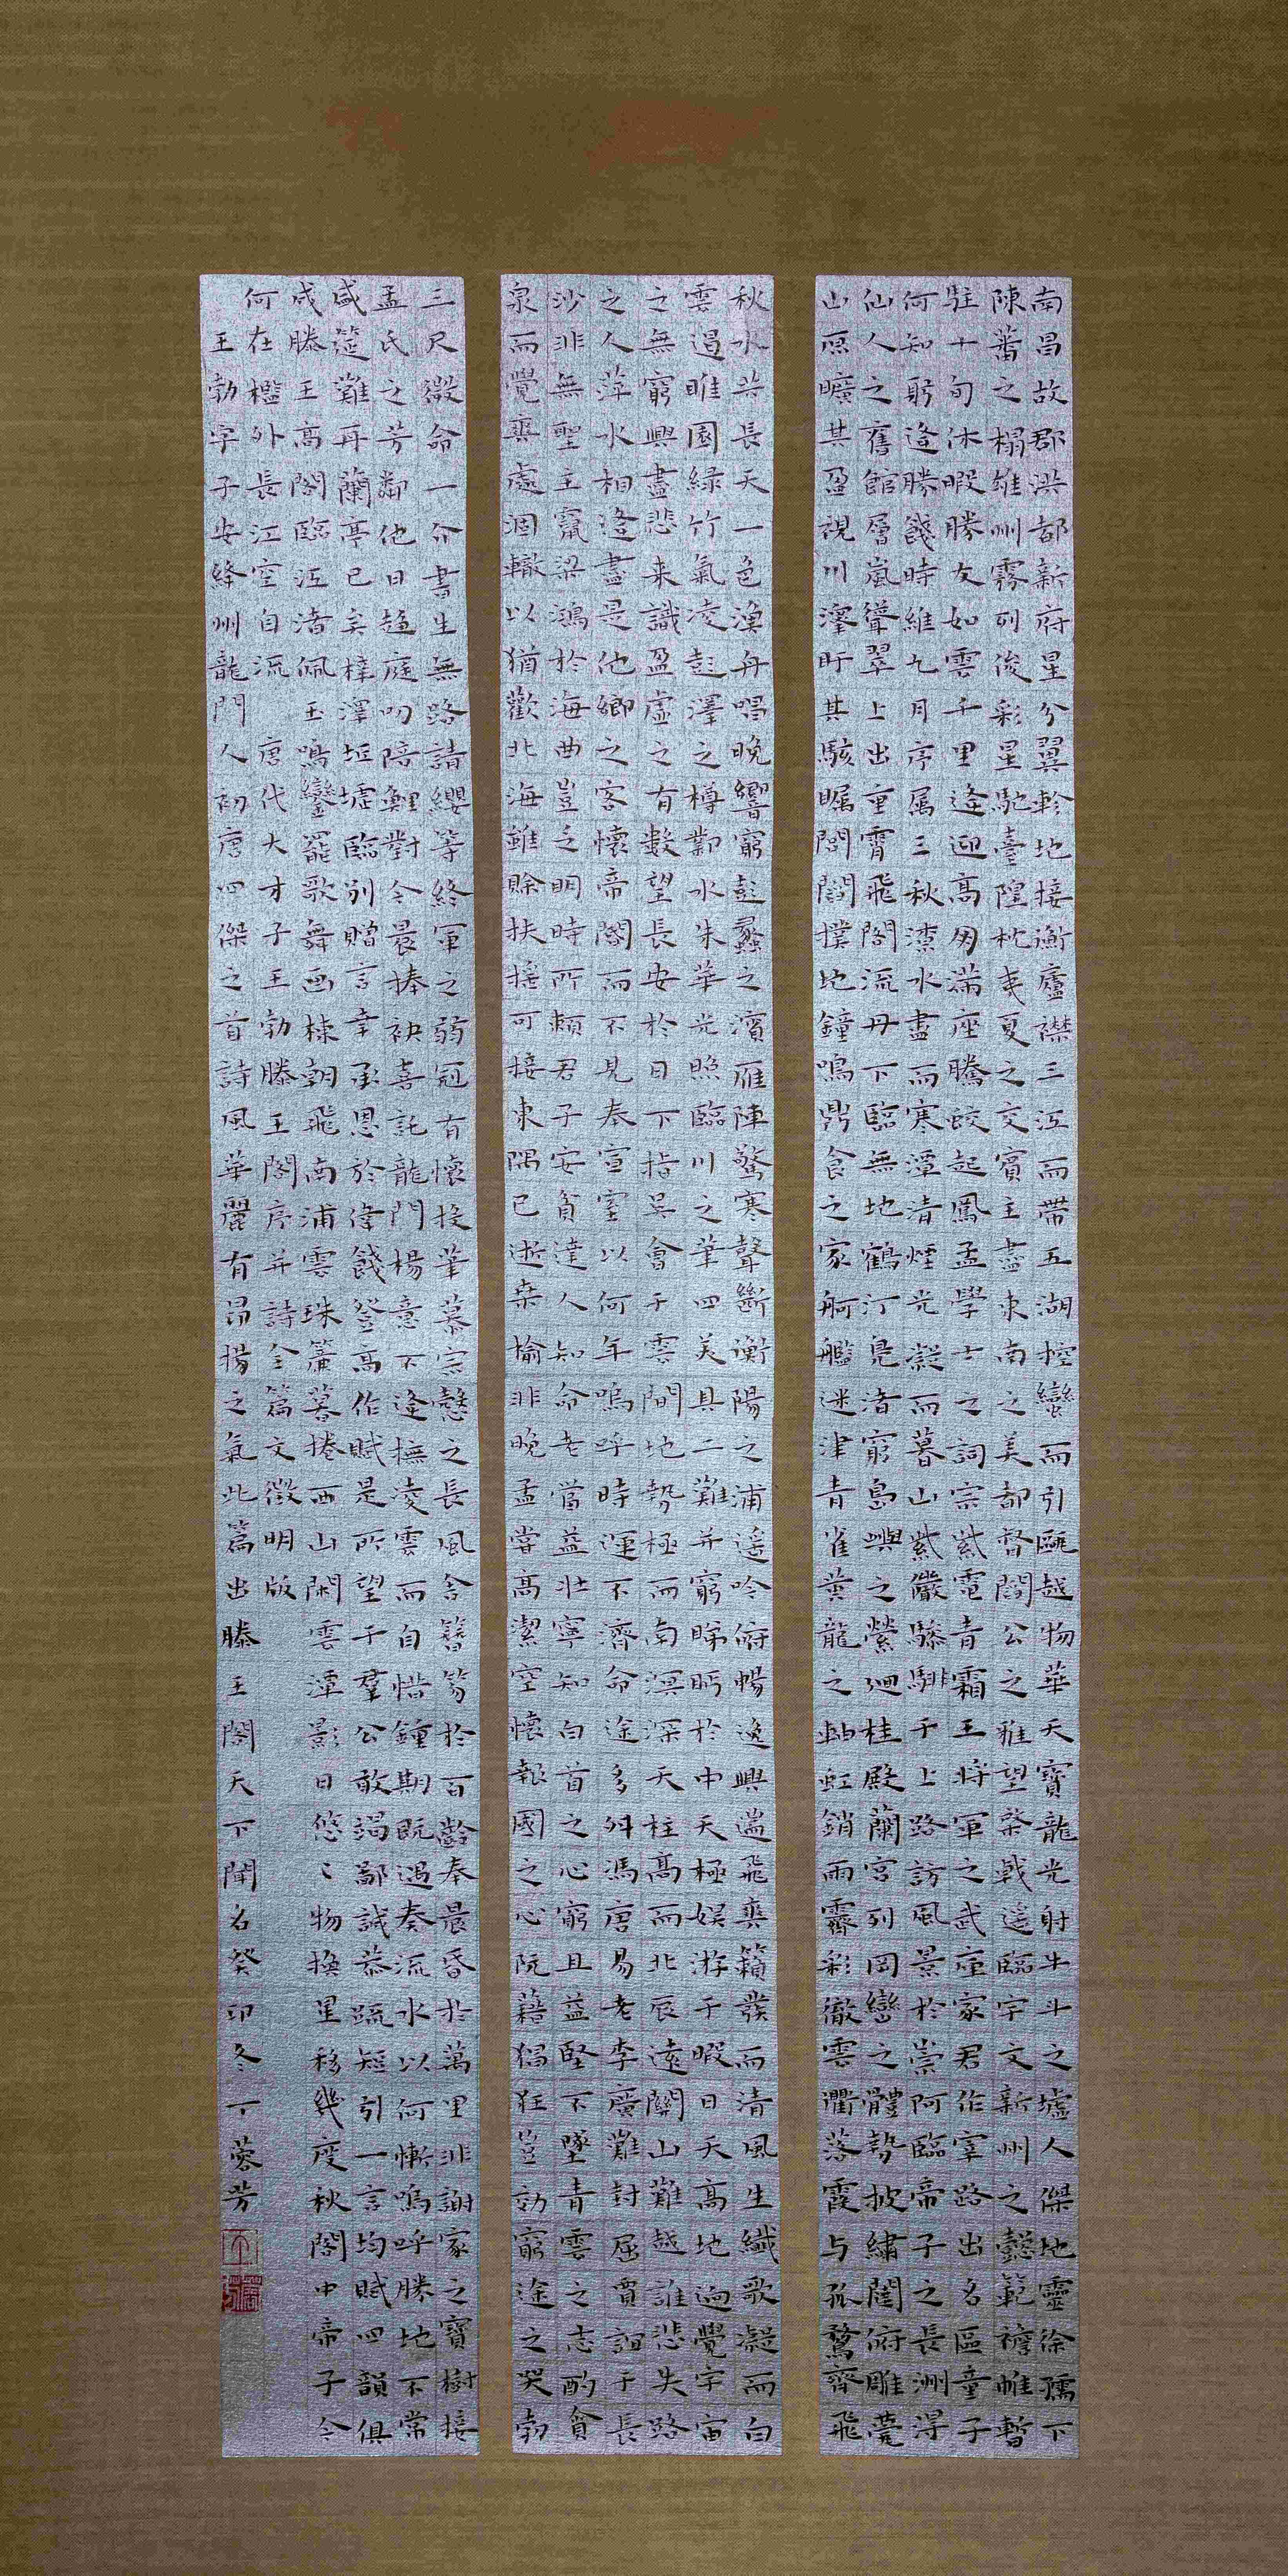 南昌故郡洪都新府星分翼軫地接衡廬襟三江而帶五湖控蠻而引甌越物華天寶龍光射牛斗之墟人傑地靈徐孺下
陳蕃之榻雄州霧列俊彩星馳臺隍枕夷夏之交賓主盡東南之美都督閻公之雅望棨戟遙臨宇文新州之懿範襜帷暫
駐十旬休暇勝友如雲千里逢迎高朋滿座騰蛟起鳳孟學士之詞宗紫電青霜王將軍之武庫家君作宰路出名區童子
何知躬逢勝餞時維九月序屬三秋潦水盡而寒潭清煙光凝而暮山紫儼驂騑于上路訪風景於崇阿臨帝子之長洲得
仙人之舊館層嵐聳翠上出重霄飛閣流丹下臨無地鶴汀鳧渚窮島嶼之縈廻桂殿蘭宮列岡巒之體勢披繡闥俯雕甍
山原曠其盈視川澤盱其駭矚閭閻撲地鐘鳴鼎食之家舸艦迷津青雀黃龍之軸虹銷雨霽彩徹雲衢落霞与孤鶩齊飛
秋水共長天一色漁舟唱晚響窮彭蠡之濱雁陣驚寒聲斷衡陽之浦遙吟俯暢逸興遄飛爽籟發而清風生纖歌凝而白
雲遏睢園綠竹氣凌彭澤之樽鄴水朱華光照臨川之筆四美具二難并窮睇眄於中天極娛游于暇日天高地迥覺宇宙
之無窮興盡悲来識盈虛之有數望長安於日下指吳會于雲間地勢極而南溟深天柱高而北辰遠關山難越誰悲失路
之人萍水相逢盡是他鄉之客懷帝閽而不見奉宣室以何年嗚呼時運不濟命途多舛馮唐易老李廣難封屈賈誼于長
沙非無聖主竄梁鴻於海曲豈乏明時所賴君子安貧達人知命老當益壯寧知白首之心窮且益堅不墜青雲之志酌貪
泉而覺爽處涸轍以猶歡北海雖賒扶搖可接東隅已逝桑榆非晚孟嘗高潔空懷報國之心阮籍猖狂豈効窮途之哭勃
三尺微命一介書生無路請纓等終軍之弱冠有懷投筆慕宗愨之長風舍簪笏於百齡奉晨昏於萬里非謝家之寶樹接
孟氏之芳鄰他日趨庭叨陪鯉對今晨捧袂喜託龍門楊意不逢撫凌雲而自惜鍾期既遇奏流水以何慚嗚呼勝地不常
盛筵難再蘭亭已矣梓澤坵墟臨別贈言幸承恩於偉餞登高作賦是所望于群公敢竭鄙誠恭疏短引一言均賦四韻俱
成滕王高閣臨江渚佩玉鳴鑾罷歌舞画棟朝飛南浦雲珠簾暮捲西山閑雲潭影日悠〻物換星移幾度秋閣中帝子今
何在檻外長江空自流 唐代大才子王勃滕王閣序并詩全篇文徵明版
王勃字子安絳州龍門人初唐四傑之首詩風華麗有昂揚之氣此篇出滕王閣天下聞名癸卯冬丁蓉芳